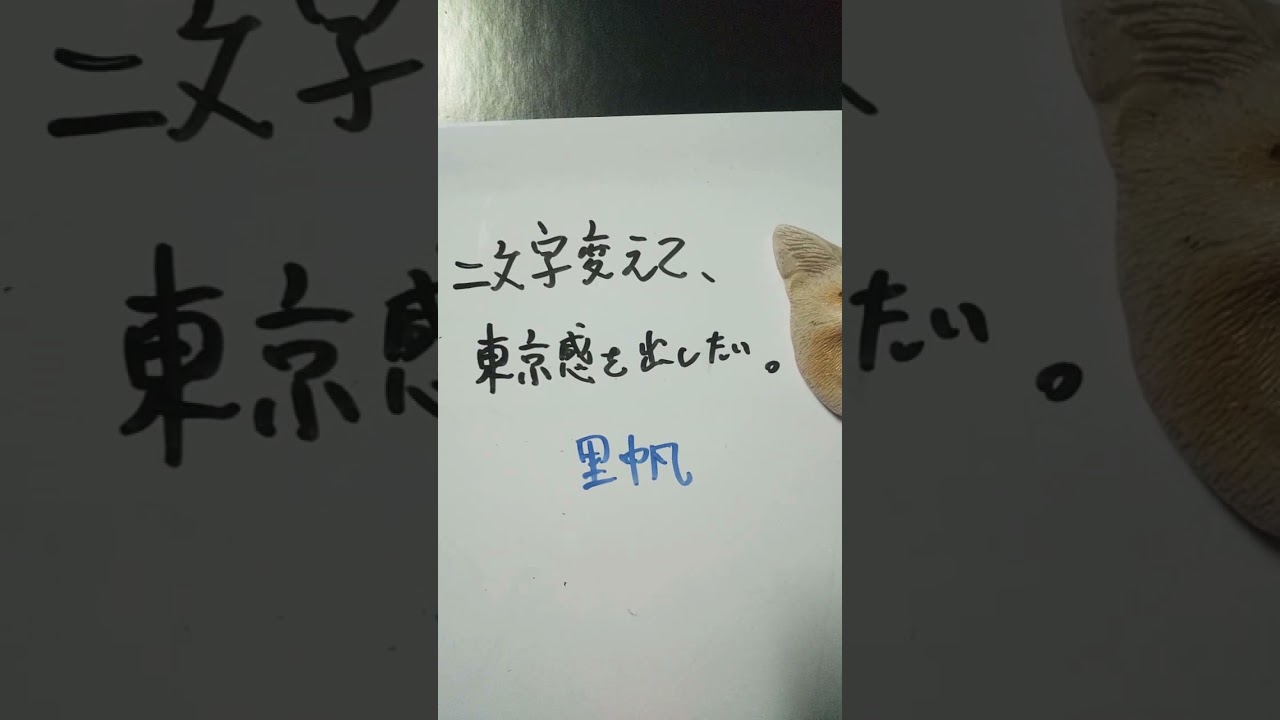 二文字変えて、
東京感を出したい。
里帆